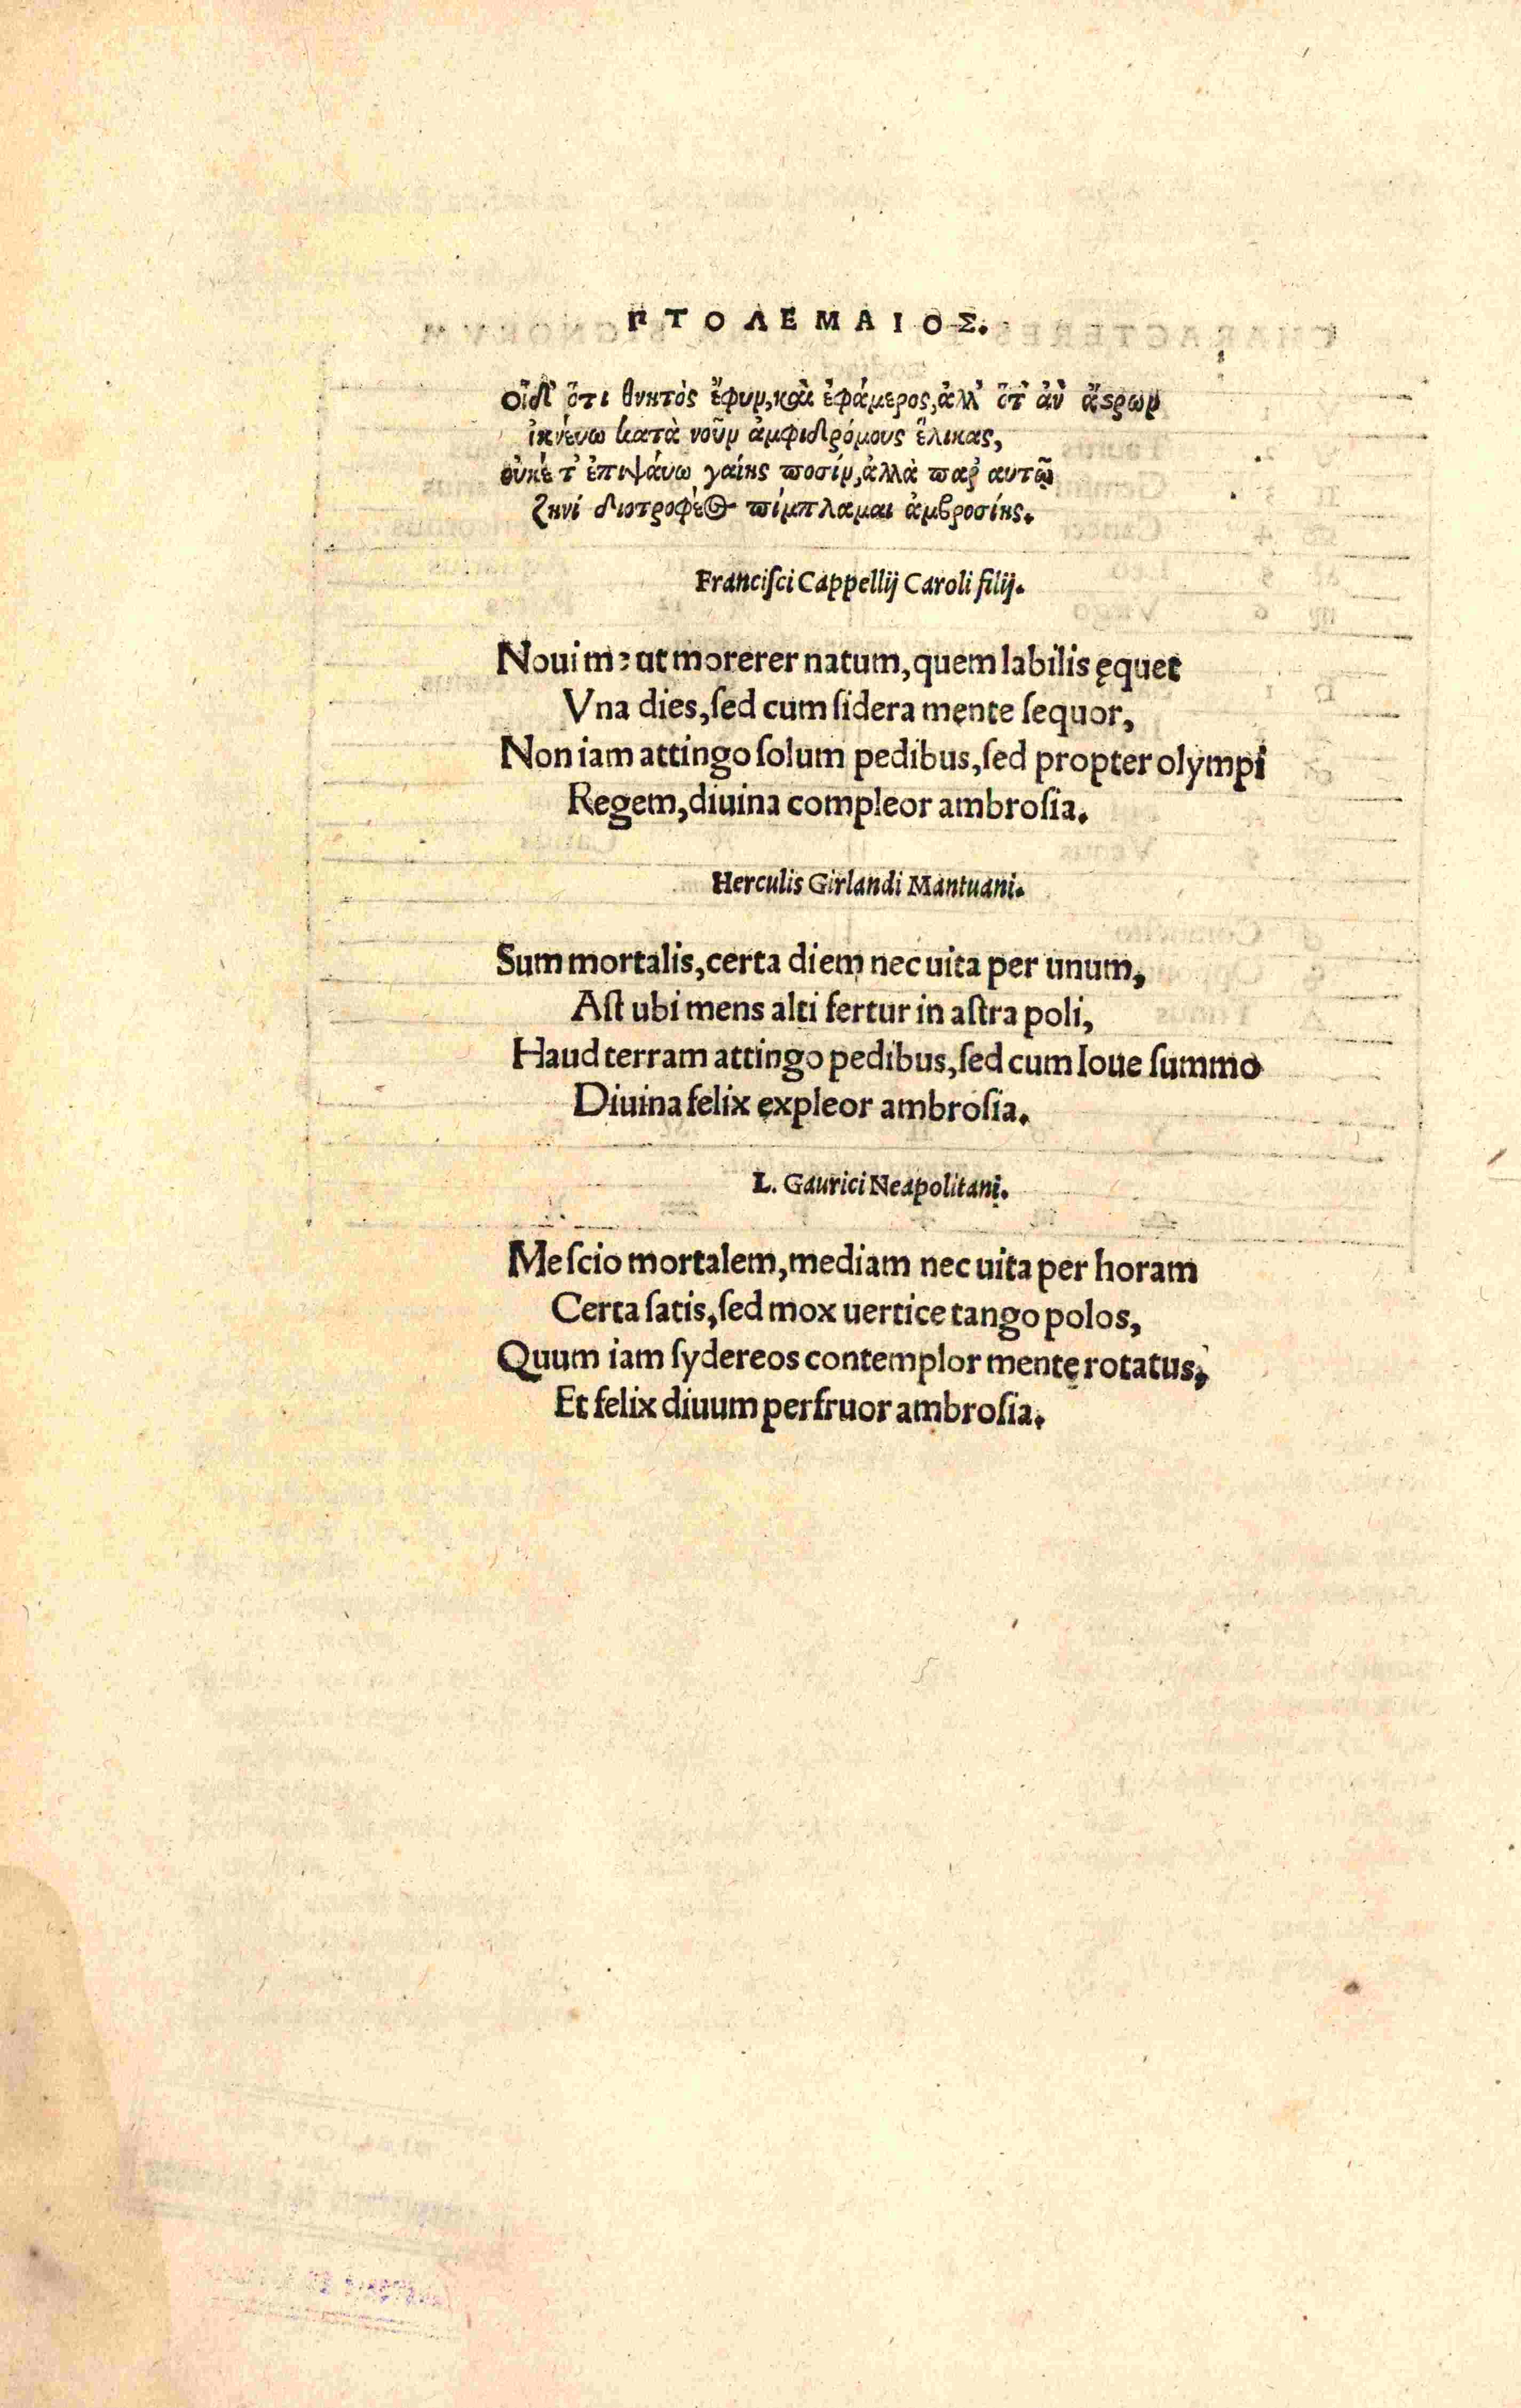 ΠΤΟΛΕΜΑΙΟΣ.
οἶδ' ὅτι θνητὸς ἔφυν, καὶ ἐφάμερος, ἀλλ' ὅτ' ἀν ἄςρων
ἰχνεύω κατὰ νοῦν ἀμφιδρόμους ἕλικας,
οὐκέ τ' ἐπιψάυω γαίης ποσίν, ἀλλὰ παρ' αυτῷ
ζηνὶ διοτροφέος πίμπλαμαι ἀμβροσίης.
Franciſci Cappellij Caroli filij.
Noui me ut morerer natum, quem labilis ęquet
Vna dies, ſed cum ſidera mente ſequor,
Non iam attingo ſolum pedibus, ſed propter olympi
Regem, diuina compleor ambroſia.
Herculis Girlandi Mantuani.
Sum mortalis, certa diem nec uita per unum,
Aſt ubi mens alti fertur in aſtra poli,
Haud terram attingo pedibus, ſed cum Ioue ſummo
Diuina felix expleor ambroſia.
L. Gaurici Neapolitani.
Me ſcio mortalem, mediam nec uita per horam
Certa ſatis, ſed mox uertice tango polos,
Quum iam ſydereos contemplor mente rotatus,
Et felix diuum perfruor ambroſia.